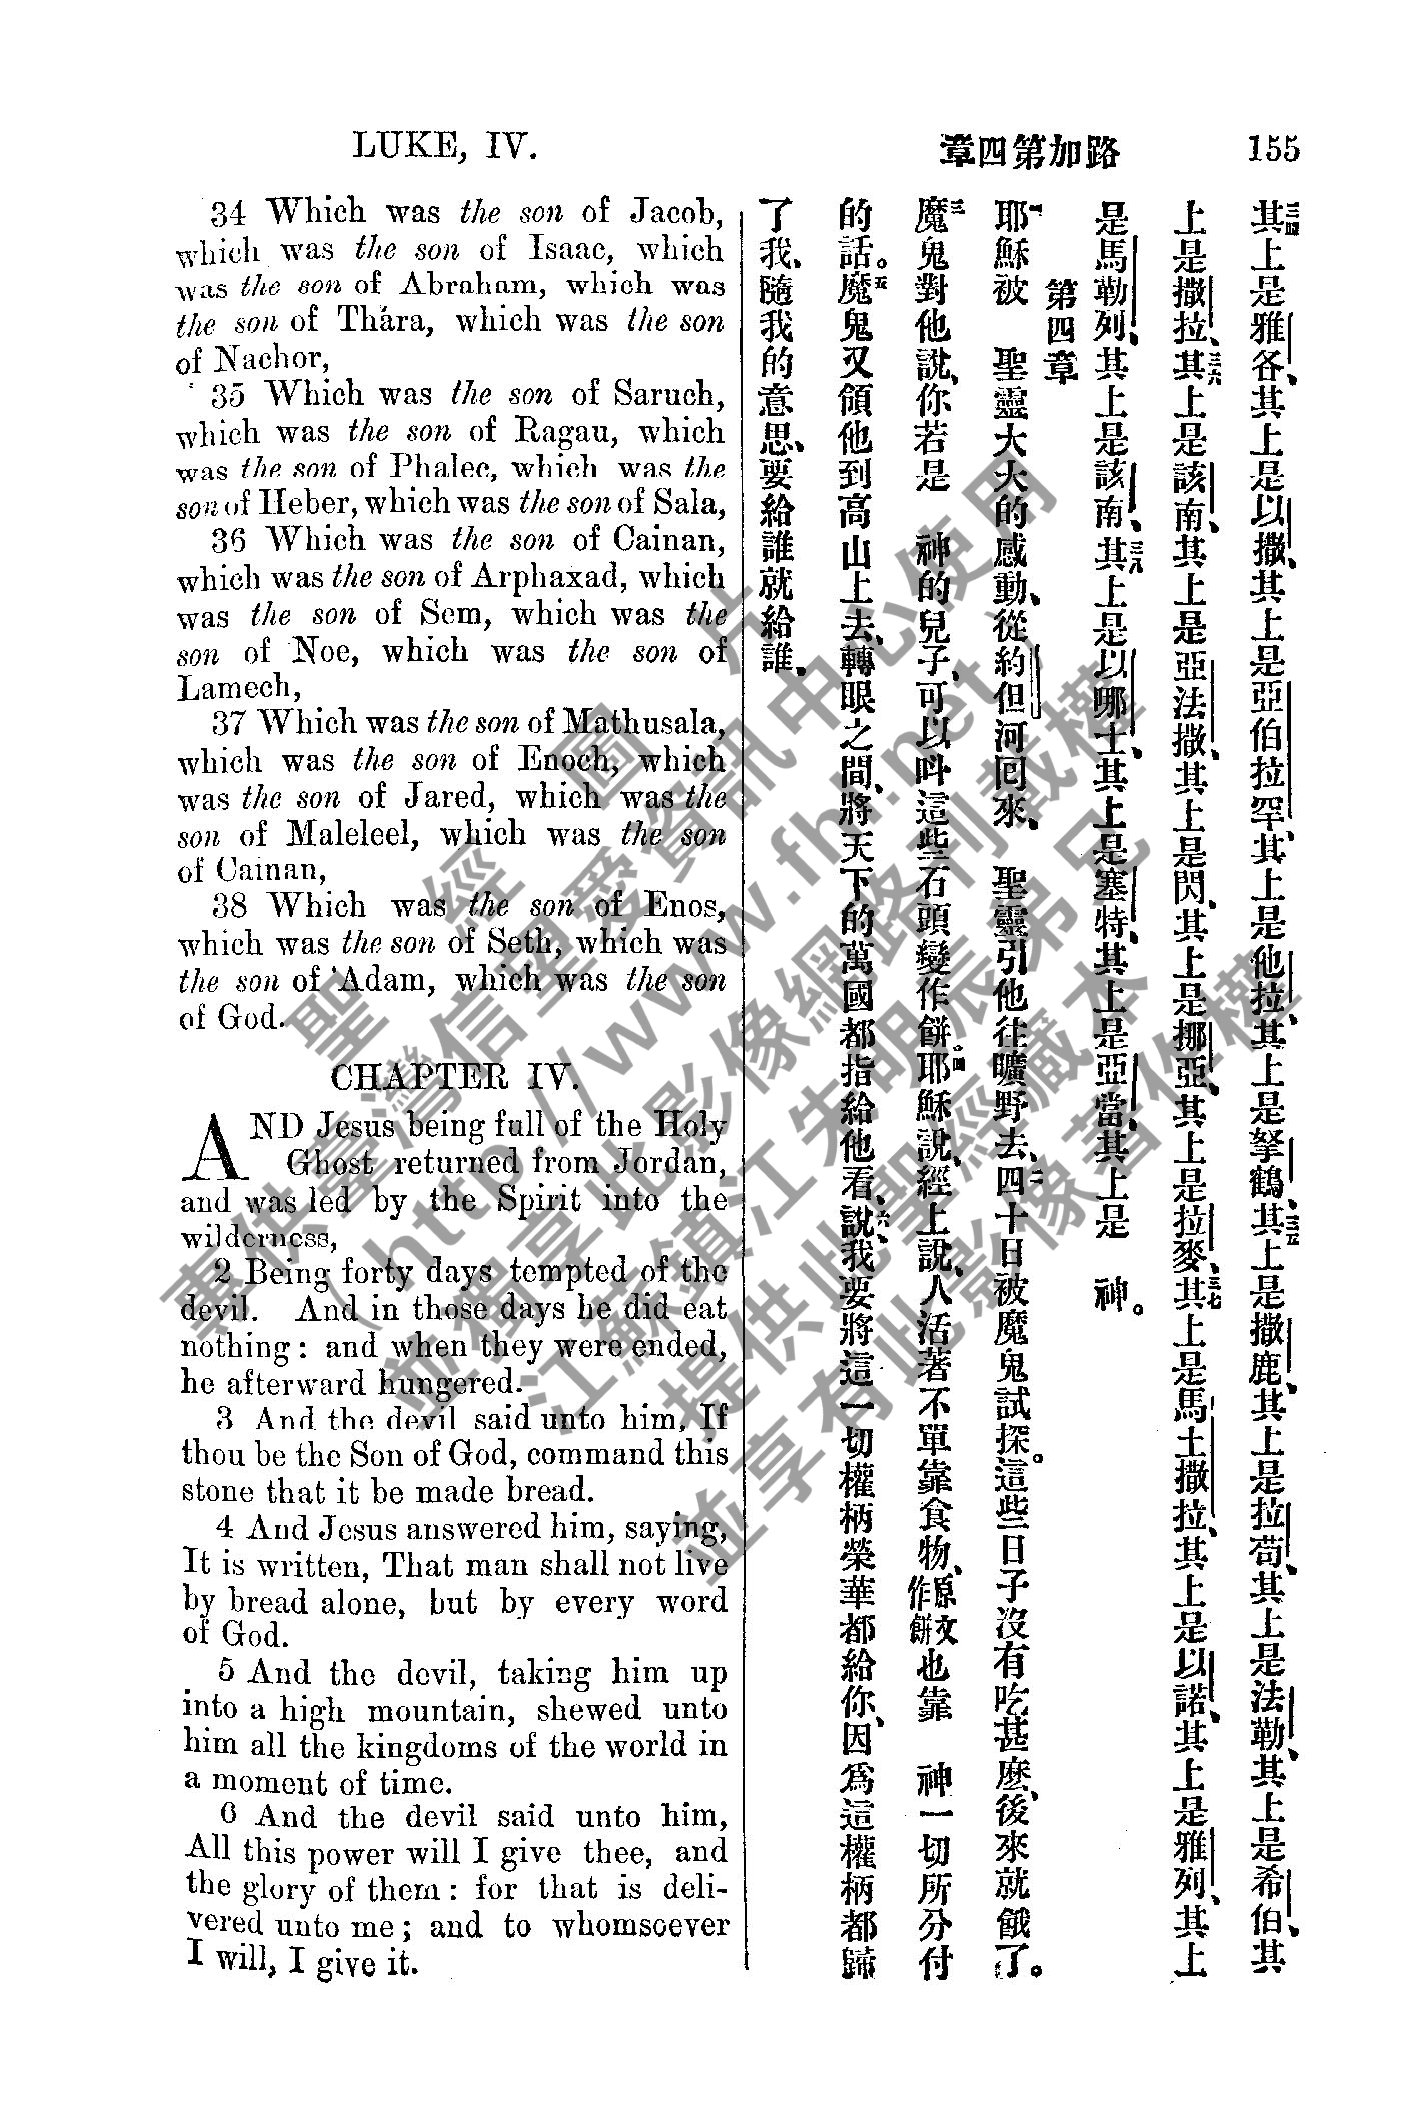 LUKE, IV.
路加第四章
155
34 Which was the son of Jacob,
which was the son of Isaac, which
was the son of Abraham, which was
the son of Thara, which was the son
of Nachor,
35 Which was the son of Saruch,
which was the son of Ragau, which
was the son of Phalec, which was the
son of Heber, which was the son of Sala,
36 Which was the son of Cainan,
which was the son of Arphaxad, which
was the son of Sem, which was the
son of Noe, which was the son of
Lamech,
37 Which was the son of Mathusala,
which was the son of Enoch, which
was the son of Jared, which was the
son of Maleleel, which was the son
of Cainan,
38 Which was the son of Enos,
which was the son of Seth, which was
the son of Adam, which was the son
of God.
CHAPTER IV.
AND Jesus being full of the Holy
Ghost returned from Jordan,
and was led by the Spirit into the
wilderness,
2 Being forty days tempted of the
devil. And in those days he did eat
nothing: and when they were ended,
he afterward hungered.
3 And the devil said unto him, If
thou be the Son of God, command this
stone that it be made bread.
4 And Jesus answered him, saying,
It is written, That man shall not live
by bread alone, but by every word
of God.
5 And the devil, taking him up
into a high mountain, shewed unto
him all the kingdoms of the world in
a moment of time.
6 And the devil said unto him,
All this power will I give thee, and
the glory of them: for that is deli-
vered unto me; and to whomsoever
I will, I give it.
三四其上是雅各、其上是以撒、其上是亞伯拉罕、其上是他拉、其上是拏鶴、三五其上是撒鹿、其上是拉苟、其上是法勒、其上是希伯、其
上是撒拉、三六其上是該南、其上是亞法撒、其上是閃、其上是挪亞、其上是拉麥、三七其上是馬土撒拉、其上是以諾、其上是雅列、其上
是馬勒列、其上是該南、三八其上是以哪士、其上是塞特、其上是亞當、其上是 神。
第四章
一耶穌被 聖靈大大的感動、從約但河回來、 聖靈引他往曠野去、二四十日被魔鬼試探。這些日子沒有吃甚麼、後來就餓了。
三魔鬼對他說、你若是 神的兒子、可以呌這些石頭變作餅、四耶穌說、經上說、人活著不單靠食物、原文作餅也靠 神一切所分付
的話。五魔鬼又領他到高山上去、轉眼之間、將天下的萬國都指給他看、六說、我要將這一切權柄榮華都給你、因爲這權柄都歸
了我、隨我的意思、要給誰就給誰、
聖經圖片
專供臺灣信望愛資訊中心使用
（http://www.fhl.net）
並得享此影像網路刊載權
江蘇鎮江朱明辰弟兄
提供此聖經藏本
並享有此影像著作權